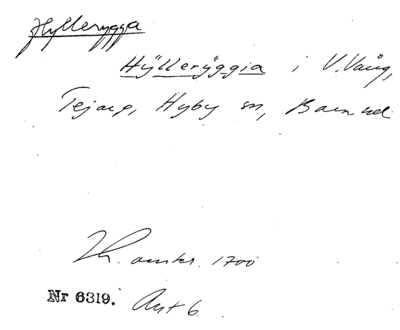 Hyllerygga
Hÿllerÿggia i V. Vång,
Tejarp, Hyby sn, Bara hd
Th. omkr. 1700
Nr 6319. Ant 6.